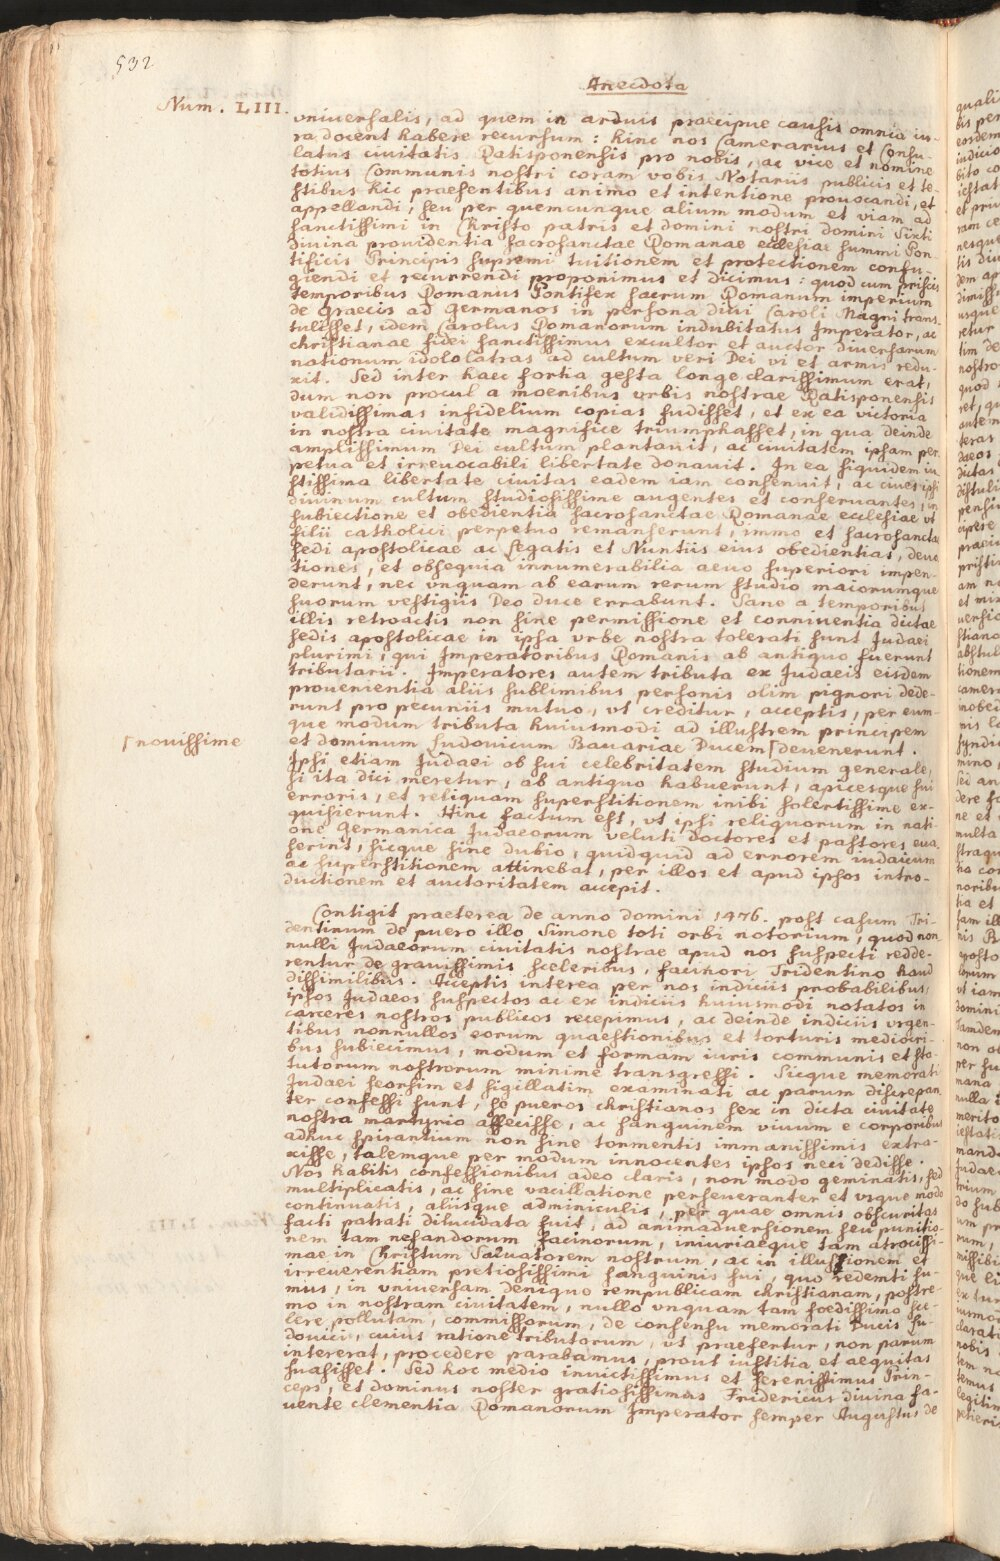 532
Anecdota
Num. LIII.
vniuersalis, ad quem in arduis praecipue causis omnia iu-
ra docent habere recursum: hinc nos Camerarius et Consu-
latus ciuitatis Ratisponensis pro nobis, ac vice et nomine
totius Communis nostri coram vobis Notariis publicis et te-
stibus hic praesentibus animo et intentione prouocandi, et
appellandi, seu per quemcunque alium modum et viam ad
sanctissimi in Christo patris et domini nostri domini Sixti
diuina prouidentia sacrosanctae Romanae ecclesiae summi Pon-
tificis Principis supremi tuitionem et protectionem confu-
giendi et recurrendi proponimus et dicimus: quod cum priscis
temporibus Romanus Pontifex sacrum Romanum imperium
de Graecis ad Germanos in persona diui Caroli Magni trans-
tulisset, idem Carolus Romanorum indubitatus Imperator, ac
christianae fidei sanctissimus excultor et auctor diuersarum
nationum idololatras ad cultum veri Dei vi et armis redu-
xit. Sed inter haec fortia gesta longe clarissimum erat,
dum non procul a moenibus vrbis nostrae Ratisponensis
validissimas infidelium copias fudisset, et ex ea victoria
in nostra ciuitate magnifice triumphasset, in qua deinde
amplissimum Dei cultum plantauit, ac ciuitatem ipsam per-
petua et irreuocabili libertate donauit. In ea siquidem iu-
stissima libertate ciuitas eadem iam consenuit, ac ciues ipsi
diuinum cultum studiosissime augentes et conseruantes, in
subiectione et obedientia sacrosanctae Romanae ecclesiae vt
filii catholici perpetuo remanserunt, immo et sacrosanctae
sedi apostolicae ac Legatis et Nuntiis eius obedientias, deuo-
tiones, et obsequia innumerabilia aeuo superiori impen-
derunt, nec vnquam ab earum rerum studio maiorumque
suorum vestigiis Deo duce errabunt. Sane a temporibus
illis retroactis non sine permissione et conniuentia dictae
sedis apostolicae in ipsa vrbe nostra tolerati sunt Judaei
plurimi, qui Imperatoribus Romanis ab antiquo fuerunt
tributarii. Imperatores autem tributa ex Judaeis eisdem
prouenientia aliis sublimibus personis olim pignori dede-
runt pro pecuniis mutuo, vt creditur, acceptis, per eum-
que modum tributa huiusmodi ad illustrem principem
et dominum Ludouicum Bauariae Ducem ⌈deuenerunt.
⌈nouissime
Ipsi etiam Judaei ob sui celebritatem studium generale,
si ita dici meretur, ab antiquo habuerunt, apicesque sui
erroris, et reliquam superstitionem inibi solertissime ex-
quisierunt. Hinc factum est, vt ipsi reliquorum in nati-
one Germanica Judaeorum veluti doctores et pastores eua-
serint, sicque sine dubio, quidquid ad errorem iudaicum
ac superstitionem attinebat, per illos et apud ipsos intro-
ductionem et auctoritatem accepit.
Contigit praeterea de anno domini 1476. post casum Tri-
dentinum de puero illo Simone toti orbi notorium, quod non-
nulli Judaeorum ciuitatis nostrae apud nos suspecti redde-
rentur de grauissimis sceleribus, facinori Tridentino haud
dissimilibus. Acceptis interea per nos indiciis probabilibus,
ipsos Judaeos suspectos ac ex indiciis huiusmodi notatos in
carceres nostros publicos recepimus, ac deinde indiciis vrgen-
tibus nonnullos eorum quaestionibus et torturis mediocri-
bus subiecimus, modum et formam iuris communis et sta-
tutorum nostrorum minime transgressi. Sicque memorati
Judaei seorsim et sigillatim examinati ac parum discrepan-
ter confessi sunt, se pueros christianos sex in dicta ciuitate
nostra martyrio affecisse, ac sanguinem viuum e corporibus
adhuc spirantium non sine tormentis immanissimis extra-
xisse, talemque per modum innocentes ipsos neci dedisse.
Nos habitis confessionibus adeo claris, non modo geminatis, sed
multiplicatis, ac sine vacillatione perseueranter et vsque modo
continuatis, aliisque adminiculis, per quae omnis obscuritas
facti patrati dilucidata fuit, ad animaduersionem seu punitio-
nem tam nefandorum facinorum, iniuriaeque tam atrocissi-
mae in Christum Saluatorem nostrum, ac in illusionem et
irreuerentiam pretiosissimi sanguinis sui, quo redemti su-
mus, in vniuersam denique rempublicam christianam, postre-
mo in nostram ciuitatem, nullo vnquam tam foedissimo sce-
lere pollutam, commissorum, de consensu memorati Ducis Lu-
douici, cuius ratione tributorum, vt praefertur, non parum
intererat, procedere parabamus, prout iustitia et aequitas
suasisset. Sed hoc medio inuictissimus et serenissimus Prin-
ceps, et dominus noster gratiosissimus Fridericus diuina fa-
uente clementia Romanorum Imperator semper Augustus de